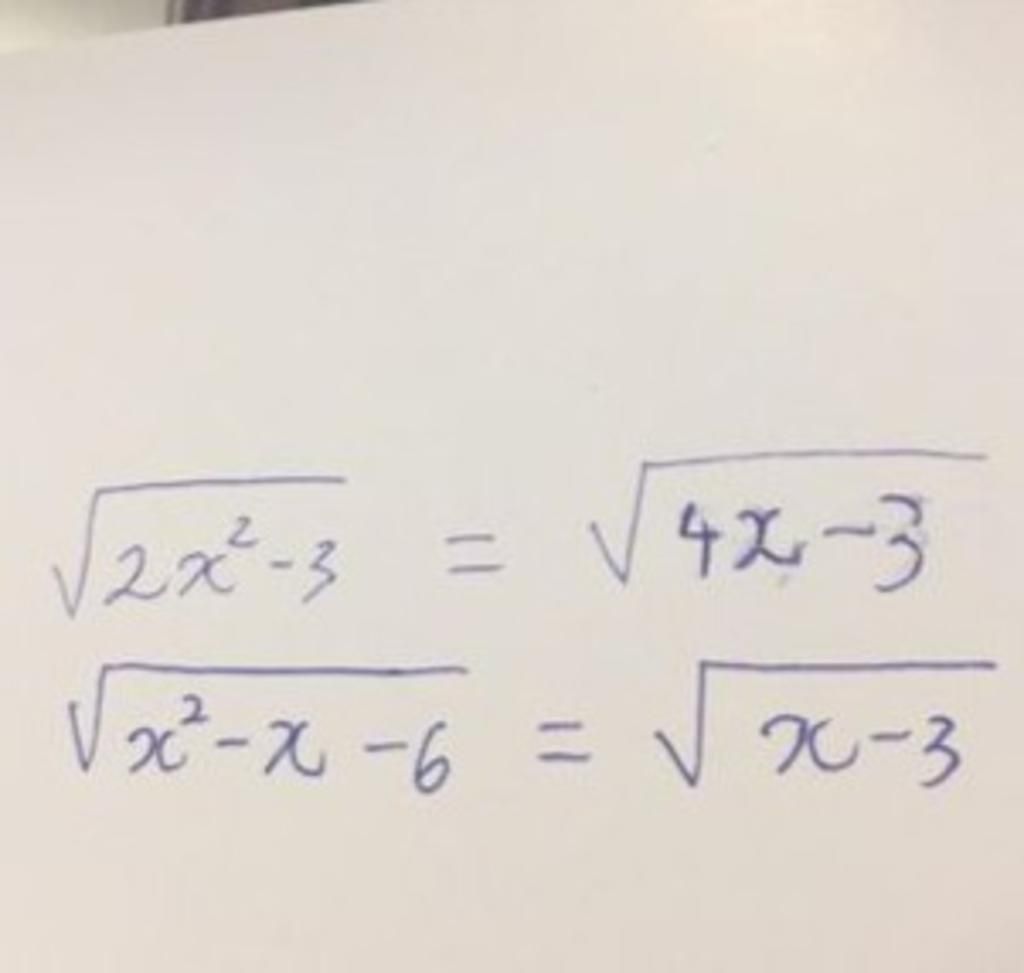 √(2x²-3) = √(4x-3)
√(x²-x-6) = √(x-3)